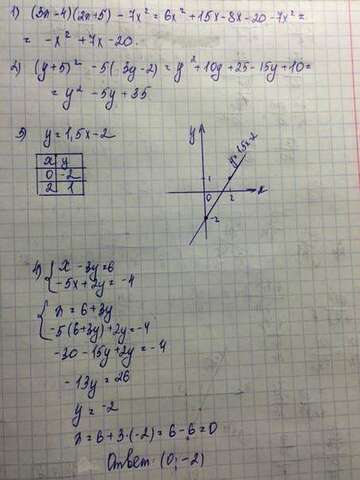 1) (3x-4)(2x+5) - 7x² = 6x² + 15x - 8x - 20 - 7x² =
= -x² + 7x - 20.
2) (y+5)² - 5(3y-2) = y² + 10y + 25 - 15y + 10 =
= y² - 5y + 35
3) y = 1,5x - 2
x y
0 -2
2 1
y
y=1,5x-2
1
0 2 x
-2
4) { x - 3y = 6
-5x + 2y = -4
{ x = 6 + 3y
-5(6+3y) + 2y = -4
-30 - 15y + 2y = -4
-13y = 26
y = -2
x = 6 + 3·(-2) = 6 - 6 = 0
Ответ: (0; -2)